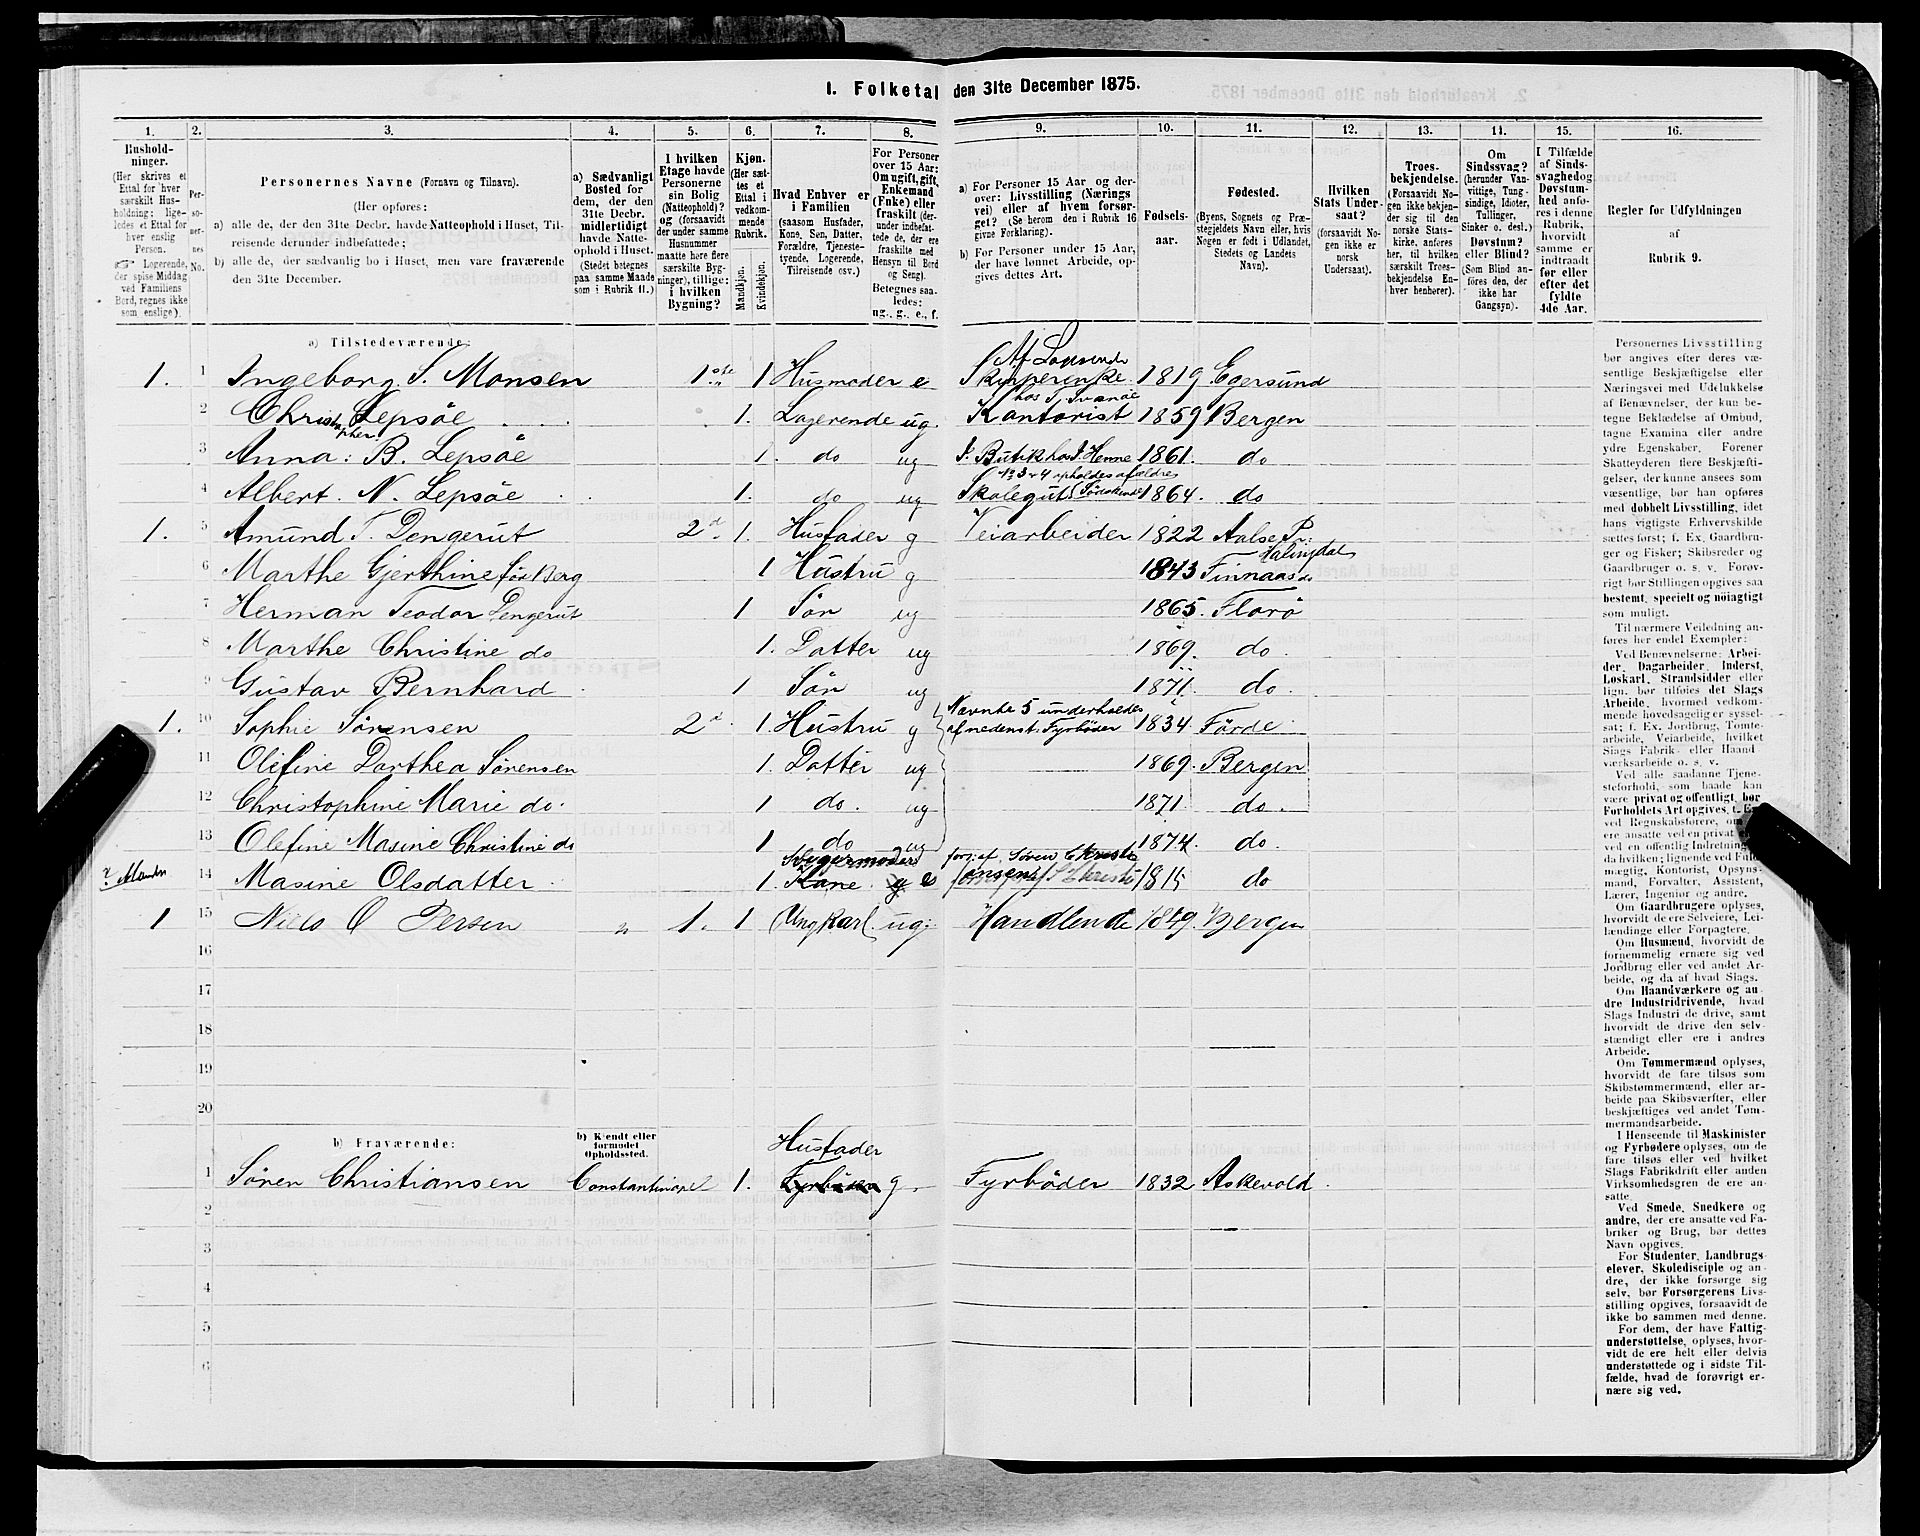 1. Folketal den 31te December 1875.
1. 2. 3. 4. 5. 6. 7. 8. 9. 10. 11. 12. 13. 14. 15. 16.
Husholdninger.
(Her skrives et Ettal for hver særskilt Husholdning; ligeledes et Ettal for hver enslig Person.
☞ Logerende, der spise Middag ved Familiens Bord, regnes ikke som enslige).
Personernes No.
Personernes Navne (Fornavn og Tilnavn).
(Her opføres:
a) alle de, der den 31te Decbr. havde Natteophold i Huset, Tilreisende derunder indbefattede;
b) alle de, der sædvanlig bo i Huset, men vare fraværende den 31te December.
a) Sædvanligt Bosted for dem, der den 31te Decbr. midlertidigt havde Natteophold i Huset.
(Stedet betegnes paa samme Maade som i Rubrik 11.)
I hvilken Etage havde Personerne sin Bolig (Natteophold)? og (forsaavidt der under samme Husnummer maatte høre flere særskilte Bygninger), tillige: i hvilken Bygning?
Kjøn.
(Her sættes et Ettal i vedkommende Rubrik.
Mandkjøn.
Kvindekjøn.
Hvad Enhver er i Familien
(saasom Husfader, Kone, Søn, Datter, Forældre, Tjenestetyende, Logerende, Tilreisende osv.)
For Personer over 15 Aar: Om ugift, gift, Enkemand (Enke) eller fraskilt (derunder indbefattede de, der ere fraskilte med Hensyn til Bord og Seng).
Betegnes saaledes: ug., g., e., f.
a) For Personer 15 Aar og derover: Livsstilling (Næringsvei) eller af hvem forsørget? (Se herom den i Rubrik 16 givne Forklaring).
b) For Personer under 15 Aar, der have lønnet Arbeide, opgives dettes Art.
Fødselsaar.
Fødested.
(Byens, Sognets og Præstegjeldets Navn eller, hvis Nogen er født i Udlandet, Stedets og Landets Navn).
Hvilken Stats Undersaat?
(forsaavidt Nogen ikke er norsk Undersaat).
Troesbekjendelse.
(Forsaavidt Nogen ikke bekjender sig til den norske Statskirke, anføres her, til hvilken særskilt Troesbekjendelse Enhver henhører).
Om Sindssvag?
(herunder Vanvittige, Tungsindige, Idioter, Tullinger, Sinker o. desl.)
Døvstum? eller Blind?
(Som Blind anføres den, der ikke har Gangsyn).
I Tilfælde af Sindssvaghed og Døvstumhed anføres i denne Rubrik, hvorvidt samme er indtraadt før eller efter det fyldte 4de Aar.
Regler for Udfyldningen af Rubrik 9.
a) Tilstedeværende:
1. 1 Ingeborg. S. Monsen 1ste 1 Husmoder e Skipperenke. 1819 Egersund
2 Christopher Lepsöe 1. Logerende ug. Kontorist 1859 Bergen
3 Anna. B. Lepsöe 1. do ug I Butik hos J. Henne 1861. do
4 Albert. N. Lepsöe 1. do ug Skolegut 1864. do
1. 5 Amund. T. Dengerut 2d. 1. Husfader g Veiarbeider 1822 Aalse Pr: Halingdal
6 Marthe Gjerthine för Berg 1 Hustru g 1843 Finnaas
7 Herman Teodor Dengerut 1 Sön ug 1865. Florö
8 Marthe Christine do 1. Datter ug 1869. do.
9 Gustav Bernhard 1 Sön ug 1871. do.
1. 10 Sophie Sörensen 2d. 1. Hustru g Nævnte 5 underholdes af nedenst. Fyrböder 1834 Förde
11 Olefine Dorthea Sörensen 1. Datter ug 1869. Bergen
12 Christophine Marie do. 1 do. ug 1871. do.
13 Olefine Masine Christine do 1 do ug 1874. do.
14 Masine Olsdatter 1. Svigermoder Kone g e fors: af. Sören Christiansen 1815 do
1 15 Niels O Persen " 1. 1 Ungkarl. ug. Handlende 1849. Bergen
16
17
18
19
20
b) Fraværende:
b) Kjendt eller formodet Opholdssted.
1 Sören Christiansen Constantinopel 1. Husfader Fyrböder g. Fyrböder 1832 Askevold.
2
3
4
5
6
Personernes Livsstilling bør angives efter deres væsentlige Beskjæftigelse eller Næringsvei med Udelukkelse af Benævnelser, der kun betegne Beklædelse af Ombud, tagne Examina eller andre ydre Egenskaber. Forener Skatteyderen flere Beskjæftigelser, der kunne ansees som væsentlige, bør han opføres med dobbelt Livsstilling, idet hans vigtigste Erhvervskilde sættes først; f. Ex. Gaardbruger og Fisker; Skibsreder og Gaardbruger o. s. v. Forøvrigt bør Stillingen opgives saa bestemt, specielt og nøiagtigt som muligt.
Til nærmere Veiledning anføres her endel Exempler:
Ved Benævnelserne: Arbeider, Dagarbeider, Inderst, Løskarl, Strandsidder eller lign. bør tilføies det Slags Arbeide, hvormed vedkommende hovedsagelig er sysselsat; f. Ex. Jordbrug, Tomtearbeide, Veiarbeide, hvilket Slags Fabrik- eller Haandværksarbeide o. s. v.
Ved alle saadanne Tjenesteforhold, som baade kan være privat og offentligt, bør Forholdets Art opgives,
Om Gaardbrugere oplyses, hvorvidt de ere Selveiere, Leilændinge eller Forpagtere.
Om Husmænd, hvorvidt de fornemmelig ernære sig ved Jordbrug eller ved andet Arbeide, og da af hvad Slags.
Om Haandværkere og andre Industridrivende, hvad Slags Industri de drive, samt hvorvidt de drive den selvstændigt eller ere i andres Arbeide.
Om Tømmermænd oplyses, hvorvidt de fare tilsøs som Skibstømmermænd, eller arbeide paa Skibsværfter, eller beskjæftiges ved andet Tømmermandsarbeide.
I Henseende til Maskinister og Fyrbødere oplyses, om de fare tilsøs eller ved hvilket Slags Fabrikdrift eller anden Virksomhedsgren de ere ansatte.
Ved Smede, Snedkere og andre, der ere ansatte ved Fabriker og Brug, bør dettes Navn opgives.
For Studenter, Landbrugselever, Skoledisciple og andre, der ikke forsørge sig selv, bør Forsørgerens Livsstilling opgives, forsaavidt de ikke bo sammen med denne.
For dem, der have Fattigunderstøttelse, oplyses, hvorvidt de ere helt eller delvis understøttede og i sidste Tilfælde, hvad de forøvrigt ernære sig ved.